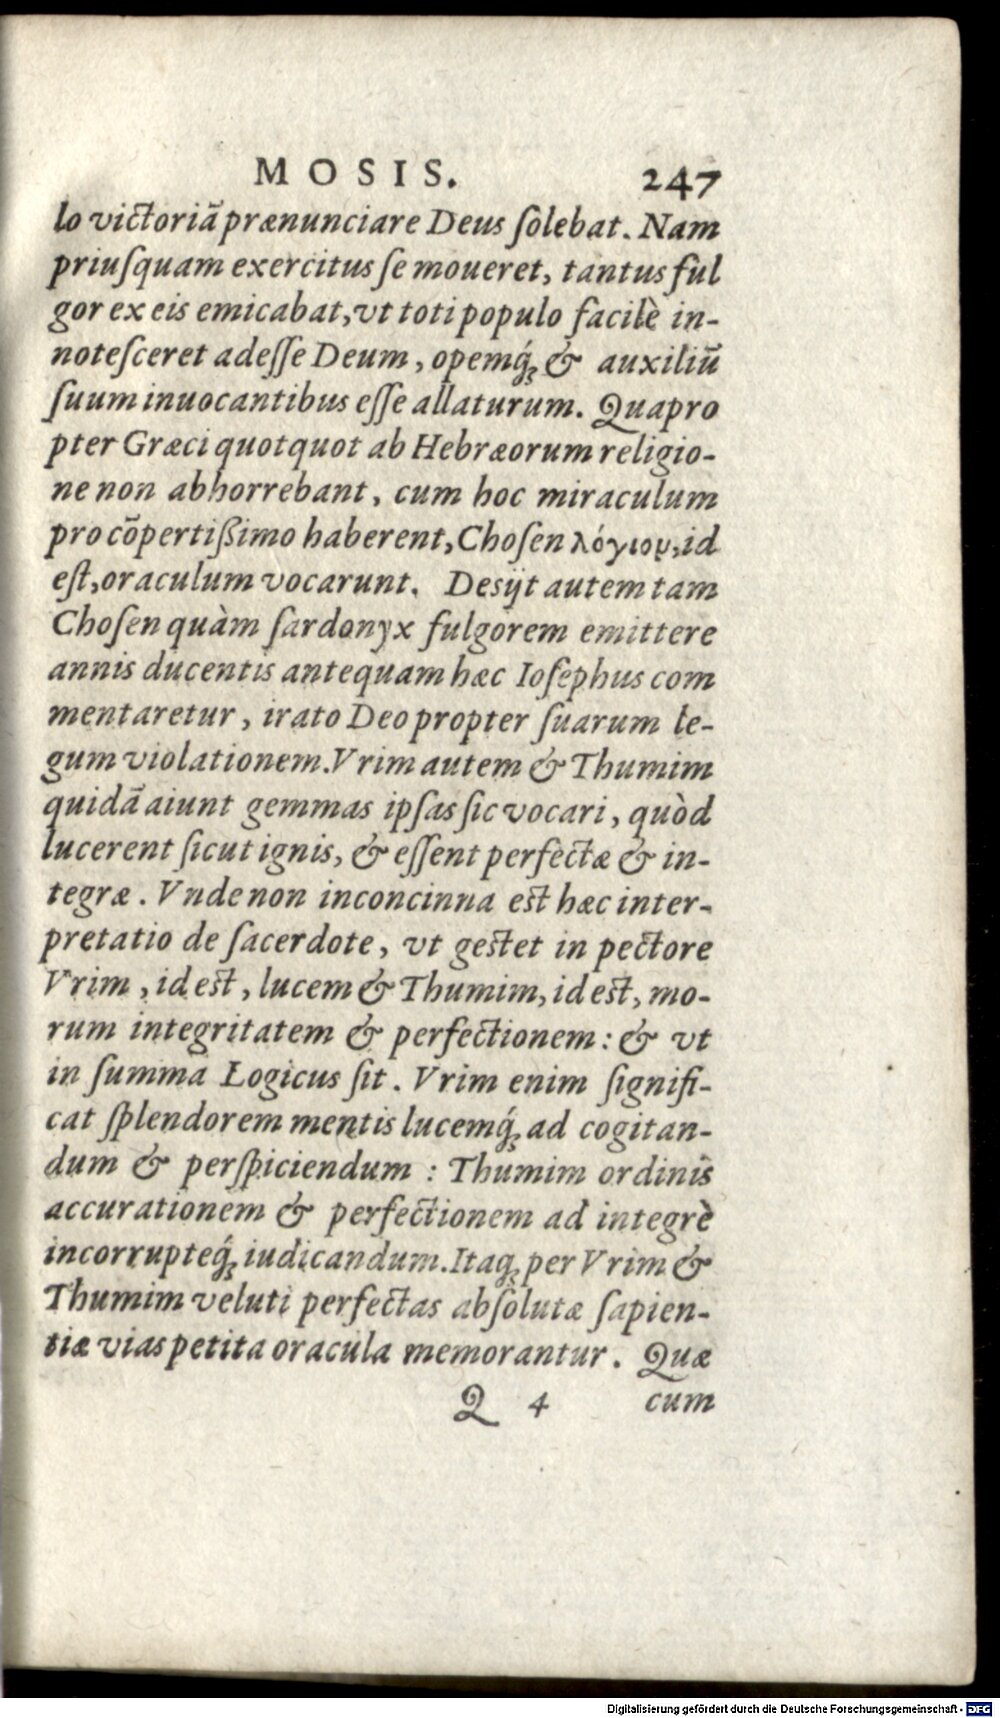 MOSIS. 247
lo victoriã prænunciare Deus ſolebat. Nam
priuſquam exercitus ſe moueret, tantus ful
gor ex eis emicabat, vt toti populo facilè in-
noteſceret adeſſe Deum, opemq́; & auxiliũ
ſuum inuocantibus eſſe allaturum. Quapro
pter Græci quotquot ab Hebræorum religio-
ne non abhorrebant, cum hoc miraculum
pro cõpertißimo haberent, Choſen λόγιον, id
eſt, oraculum vocarunt. Desijt autem tam
Choſen quàm ſardonyx fulgorem emittere
annis ducentis antequam hæc Ioſephus com
mentaretur, irato Deo propter ſuarum le-
gum violationem. Vrim autem & Thumim
quidã aiunt gemmas ipſas ſic vocari, quòd
lucerent ſicut ignis, & eſſent perfectæ & in-
tegræ. Vnde non inconcinna eſt hæc inter-
pretatio de ſacerdote, vt geſtet in pectore
Vrim, id eſt, lucem & Thumim, id eſt, mo-
rum integritatem & perfectionem: & vt
in ſumma Logicus ſit. Vrim enim ſignifi-
cat ſplendorem mentis lucemq́; ad cogitan-
dum & perſpiciendum: Thumim ordinis
accurationem & perfectionem ad integrè
incorrupteq́; iudicandum. Itaq; per Vrim &
Thumim veluti perfectas abſolutæ ſapien-
tiæ vias petita oracula memorantur. Quæ
Q 4 cum
Digitalisierung gefördert durch die Deutsche Forschungsgemeinschaft - DFG